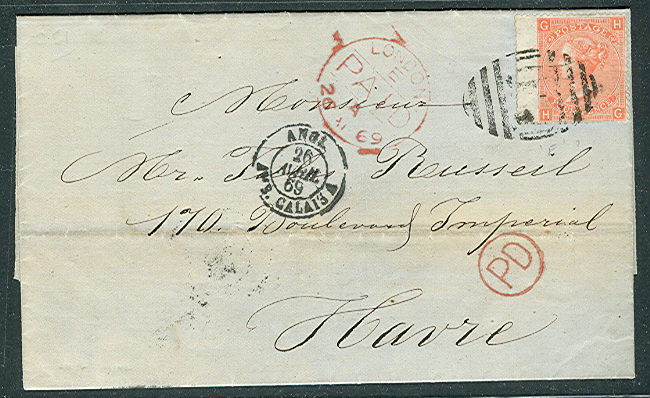 G H
POSTAGE
H G
LONDON
E
PAID
26 AP 69
Monsieur
ANGL.
26
AVRIL
69
CALAIS
Mr. Russell
170. Boulevard Imperial
PD
Havre